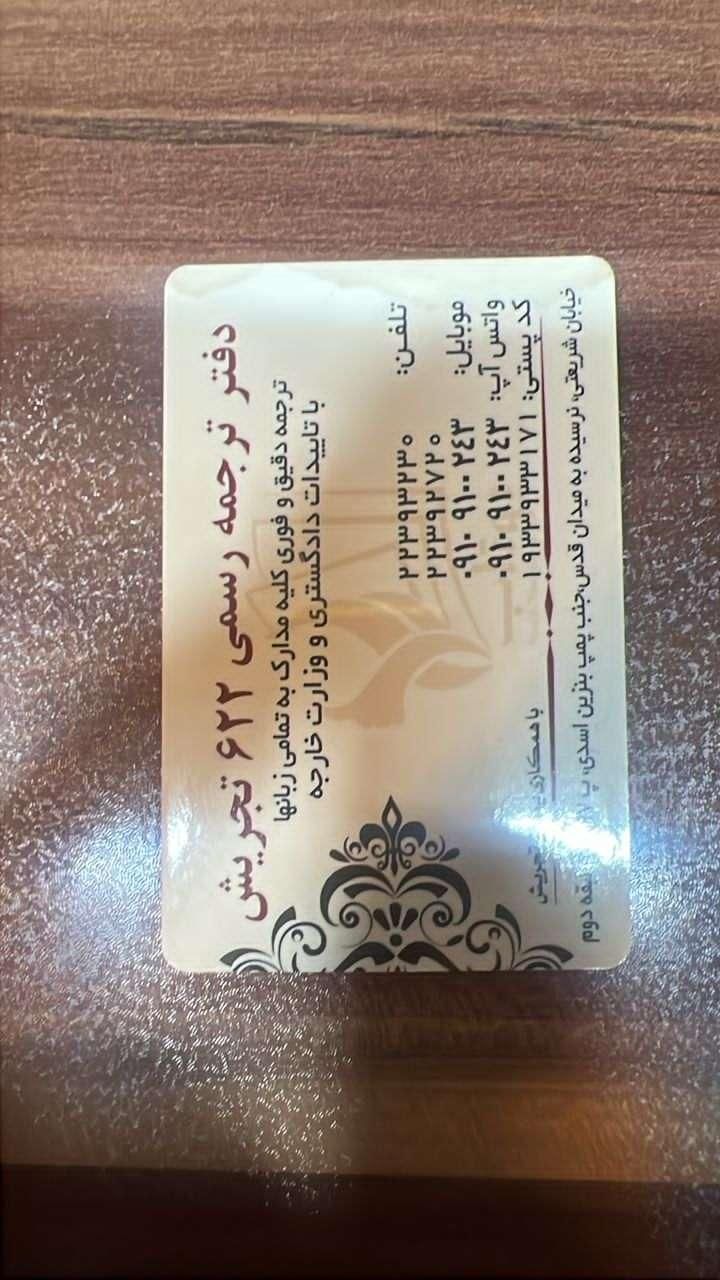 دفتر ترجمه رسمی ۶۲۲ تجریش
ترجمه دقیق و فوری کلیه مدارک به تمامی زبانها
با تاییدات دادگستری و وزارت خارجه
تلفن: ۲۲۳۹۳۲۳۰
۲۲۳۹۲۷۲۰
موبایل: ۰۹۱۰ ۹۱۰۰ ۲۴۳
واتس آپ: ۰۹۱۰ ۹۱۰۰ ۲۴۳
کد پستی: ۱۹۳۳۹۳۳۱۷۱
با همکاری تجریش
خیابان شریعتی، نرسیده به میدان قدس، جنب پمپ بنزین اسدی، پ طبقه دوم